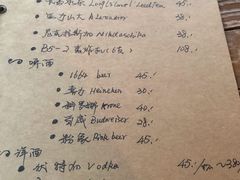 Long Island Iced Tea 45.-
亚力山大 Alexander 38.-
尼克拉斯加 Nikolaschika 38.-
B5-2 轰炸机(6支) 108.-
啤酒
• 1664 beer 45.-
• 喜力 Heineken 30.-
• 科罗娜 Krone 40.-
• 百威 Budweiser 28.-
• 粉象 Pink beer 45.-
洋酒
• 伏特加 Vodka 45.-/